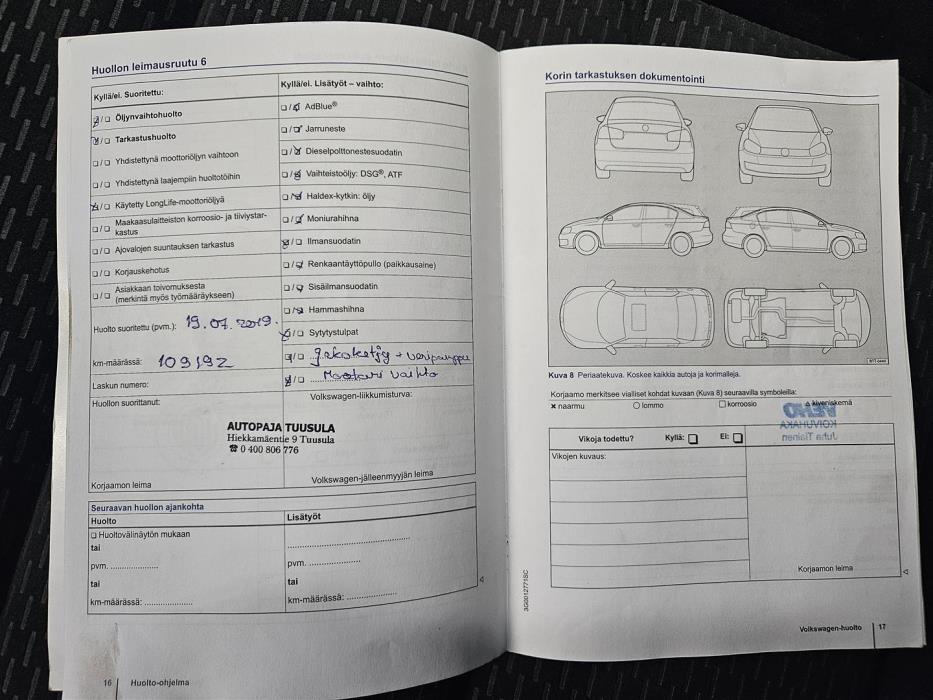 Huollon leimausruutu 6
Kyllä/ei. Suoritettu:
☑/☐ Öljynvaihtohuolto
☑/☐ Tarkastushuolto
☐/☐ Yhdistettynä moottoriöljyn vaihtoon
☐/☐ Yhdistettynä laajempiin huoltotöihin
☑/☐ Käytetty LongLife-moottoriöljyä
☐/☐ Maakaasulaitteiston korroosio- ja tiiviystar-
kastus
☐/☐ Ajovalojen suuntauksen tarkastus
☐/☐ Korjauskehotus
☐/☐ Asiakkaan toivomuksesta
(merkintä myös työmääräykseen)
Huolto suoritettu (pvm.): 19.07.2019.
km-määrässä: 109192
Laskun numero:
Huollon suorittanut:
AUTOPAJA TUUSULA
Hiekkamäentie 9 Tuusula
☎ 0 400 806 776
Korjaamon leima
Kyllä/ei. Lisätyöt – vaihto:
☐/☑ AdBlue®
☐/☑ Jarruneste
☐/☑ Dieselpolttonestesuodatin
☐/☑ Vaihteistoöljy: DSG®, ATF
☐/☑ Haldex-kytkin: öljy
☐/☑ Moniurahihna
☑/☐ Ilmansuodatin
☐/☑ Renkaantäyttöpullo (paikkausaine)
☐/☑ Sisäilmansuodatin
☐/☑ Hammashihna
☑/☐ Sytytystulpat
☑/☐ Jakoketju + vesipumppu
☑/☐ Moottori vaihto
Volkswagen-liikkumisturva:
Volkswagen-jälleenmyyjän leima
Seuraavan huollon ajankohta
Huolto
☐ Huoltovälinäytön mukaan
tai
pvm. ....................
tai
km-määrässä: ....................
Lisätyöt
pvm. ....................
tai
km-määrässä: ....................
16 Huolto-ohjelma
Korin tarkastuksen dokumentointi
Kuva 8 Periaatekuva. Koskee kaikkia autoja ja korimalleja.
Korjaamo merkitsee vialliset kohdat kuvaan (Kuva 8) seuraavilla symboleilla:
✕ naarmu ○ lommo ☐ korroosio △ kiveniskemä
Vikoja todettu? Kyllä: ☐ Ei: ☐
Vikojen kuvaus:
KOIVUHAKA
Juha Tiainen
Korjaamon leima
3G0012771SC
Volkswagen-huolto 17